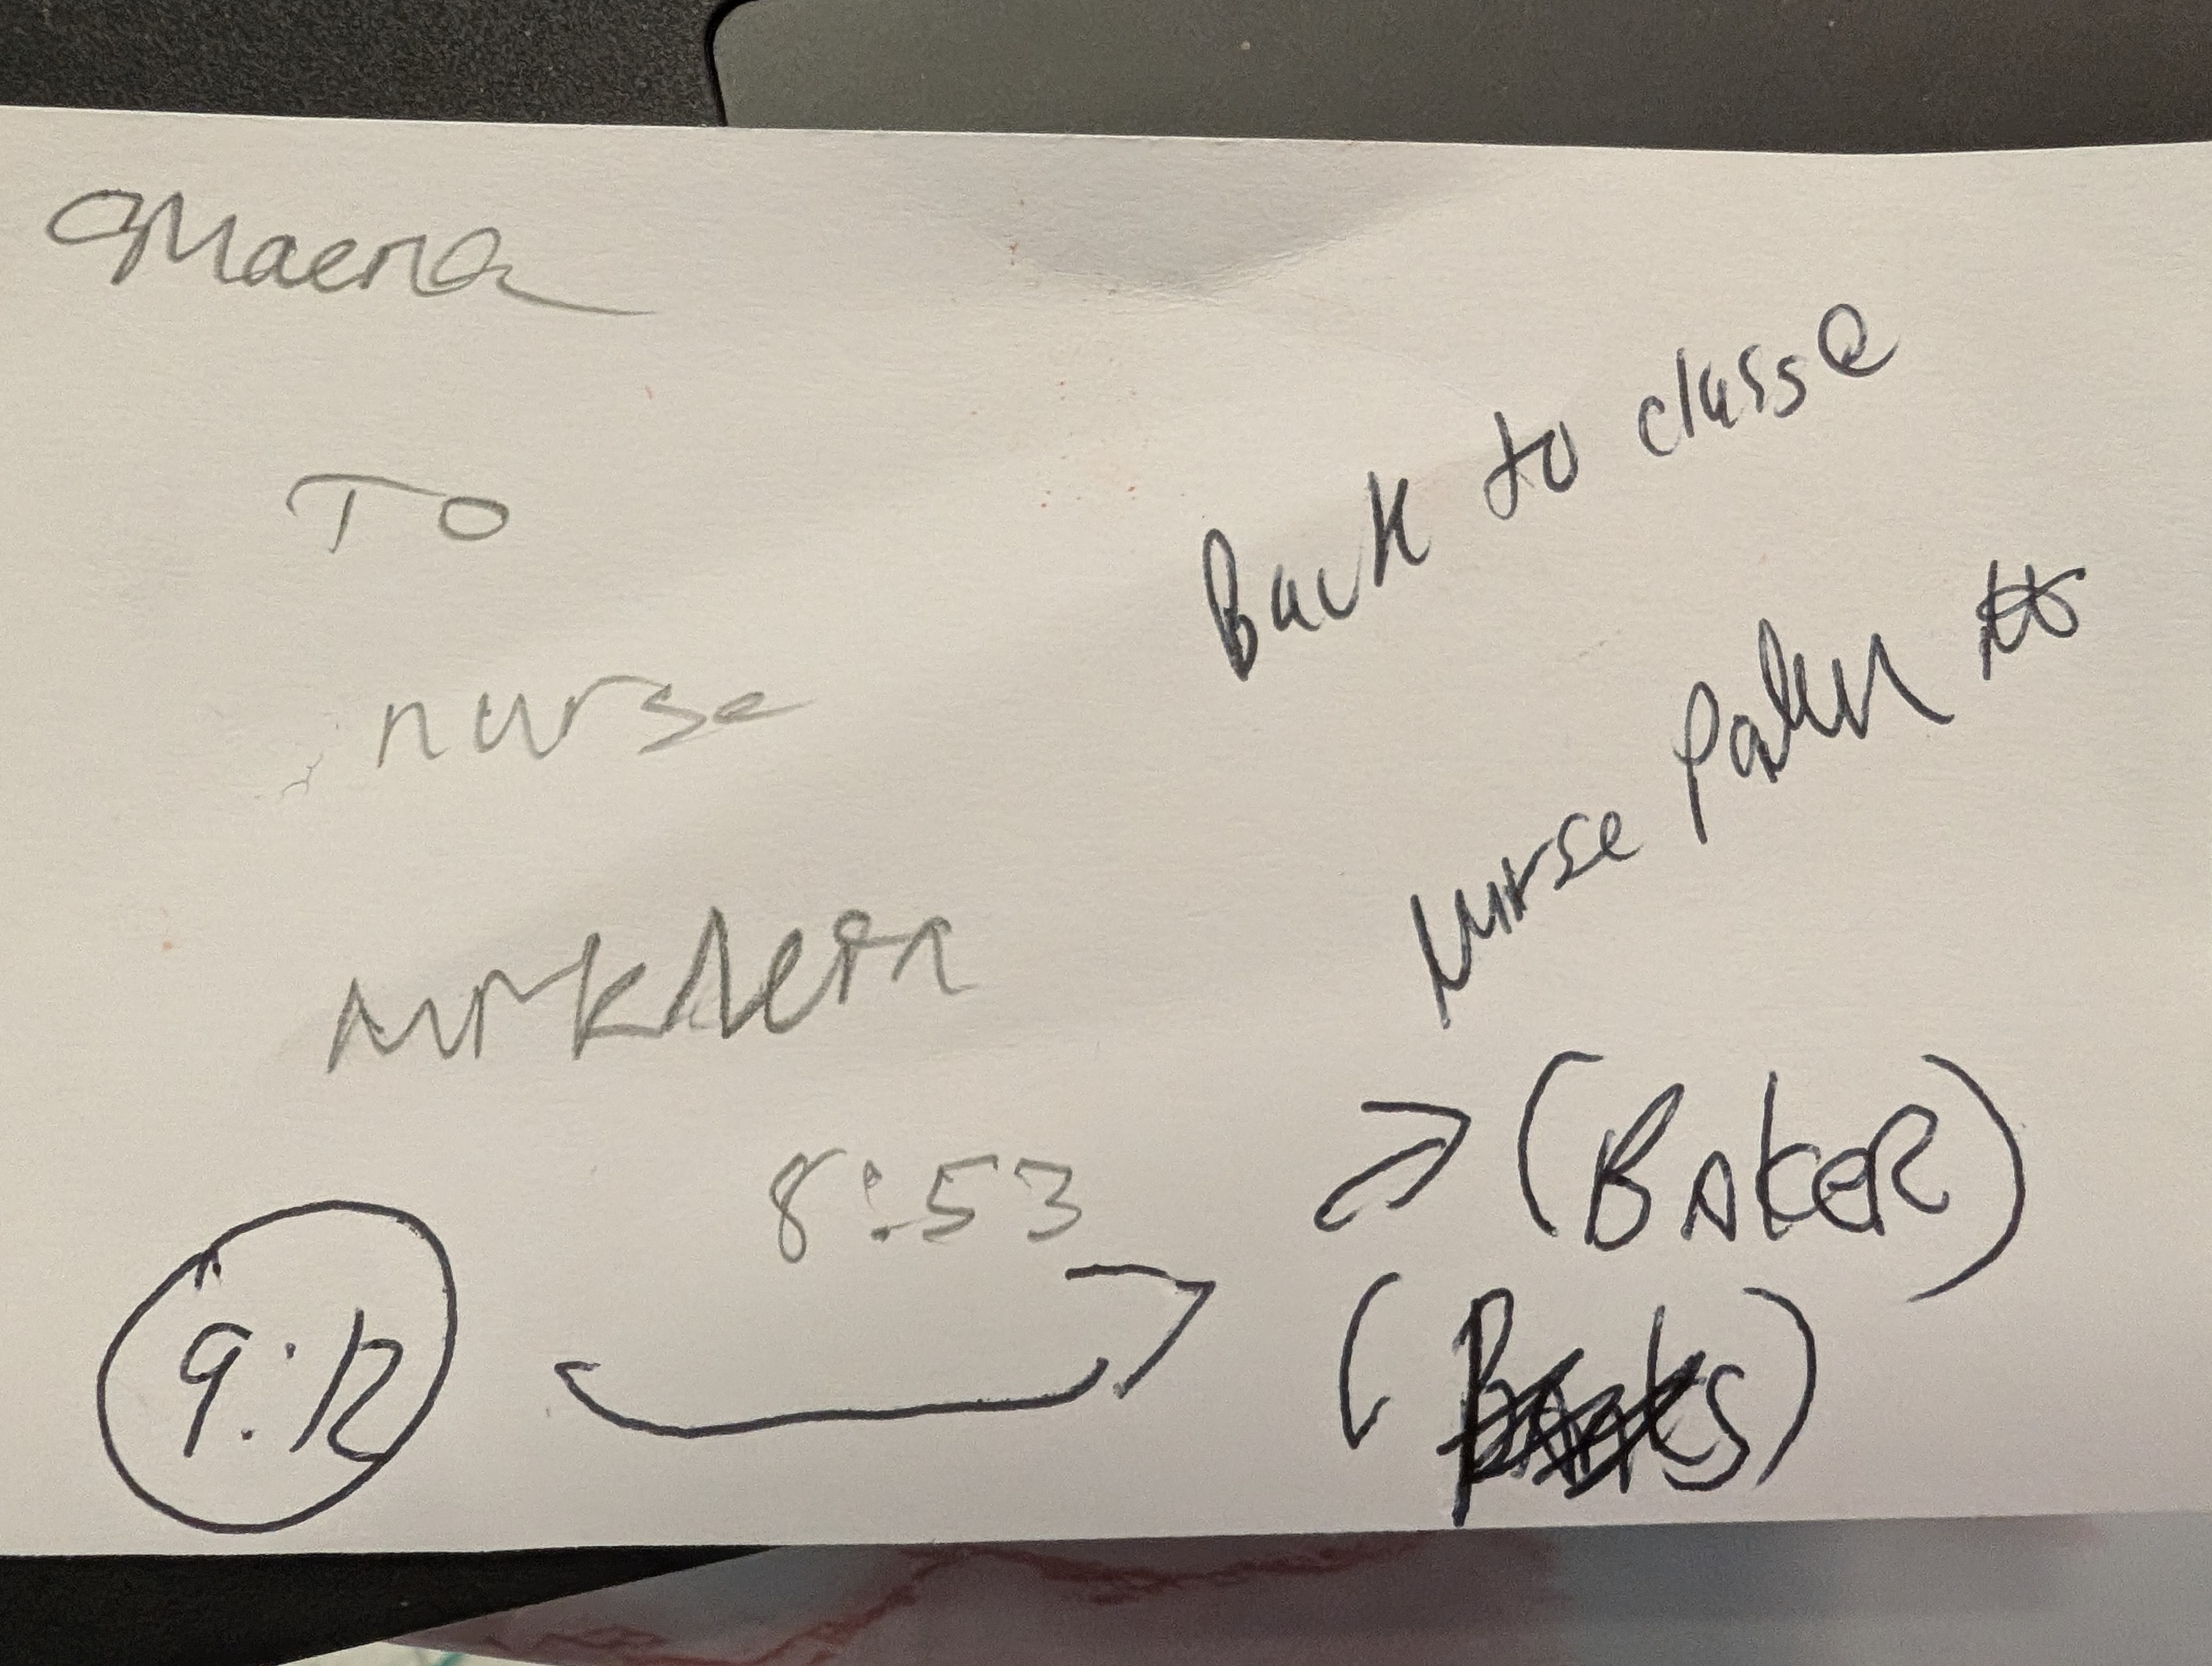 Maena
To
nurse
Mr Klein
8:53
9:12
Back to class @
Nurse
(BAKER)